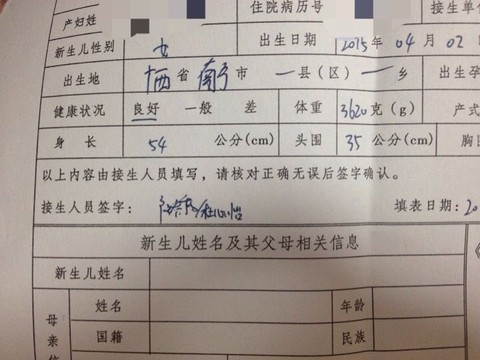 产妇姓 住院病历号 接生单位
新生儿性别 女 出生日期 2015年 04月 02
出生地 广西省 南宁市 一县(区) 一乡 出生孕
健康状况 良好 一般 差 体重 3620克(g) 产式
身 长 54 公分(cm) 头围 35 公分(cm) 胸围
以上内容由接生人员填写,请核对正确无误后签字确认。
接生人员签字: 填表日期:20
新生儿姓名及其父母相关信息
新生儿姓名
姓名 年龄
母亲信
国籍 民族